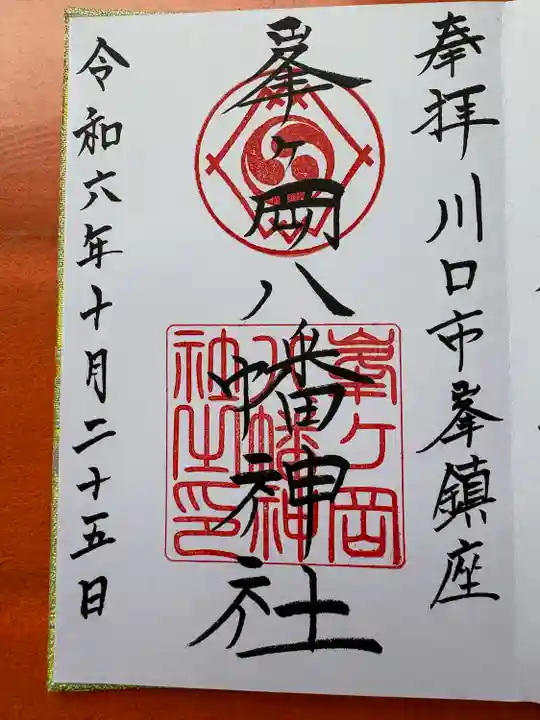 奉拝川口市峯鎮座
峯ヶ岡八幡神社
峯ヶ岡
八幡神
社之印
令和六年十月二十五日